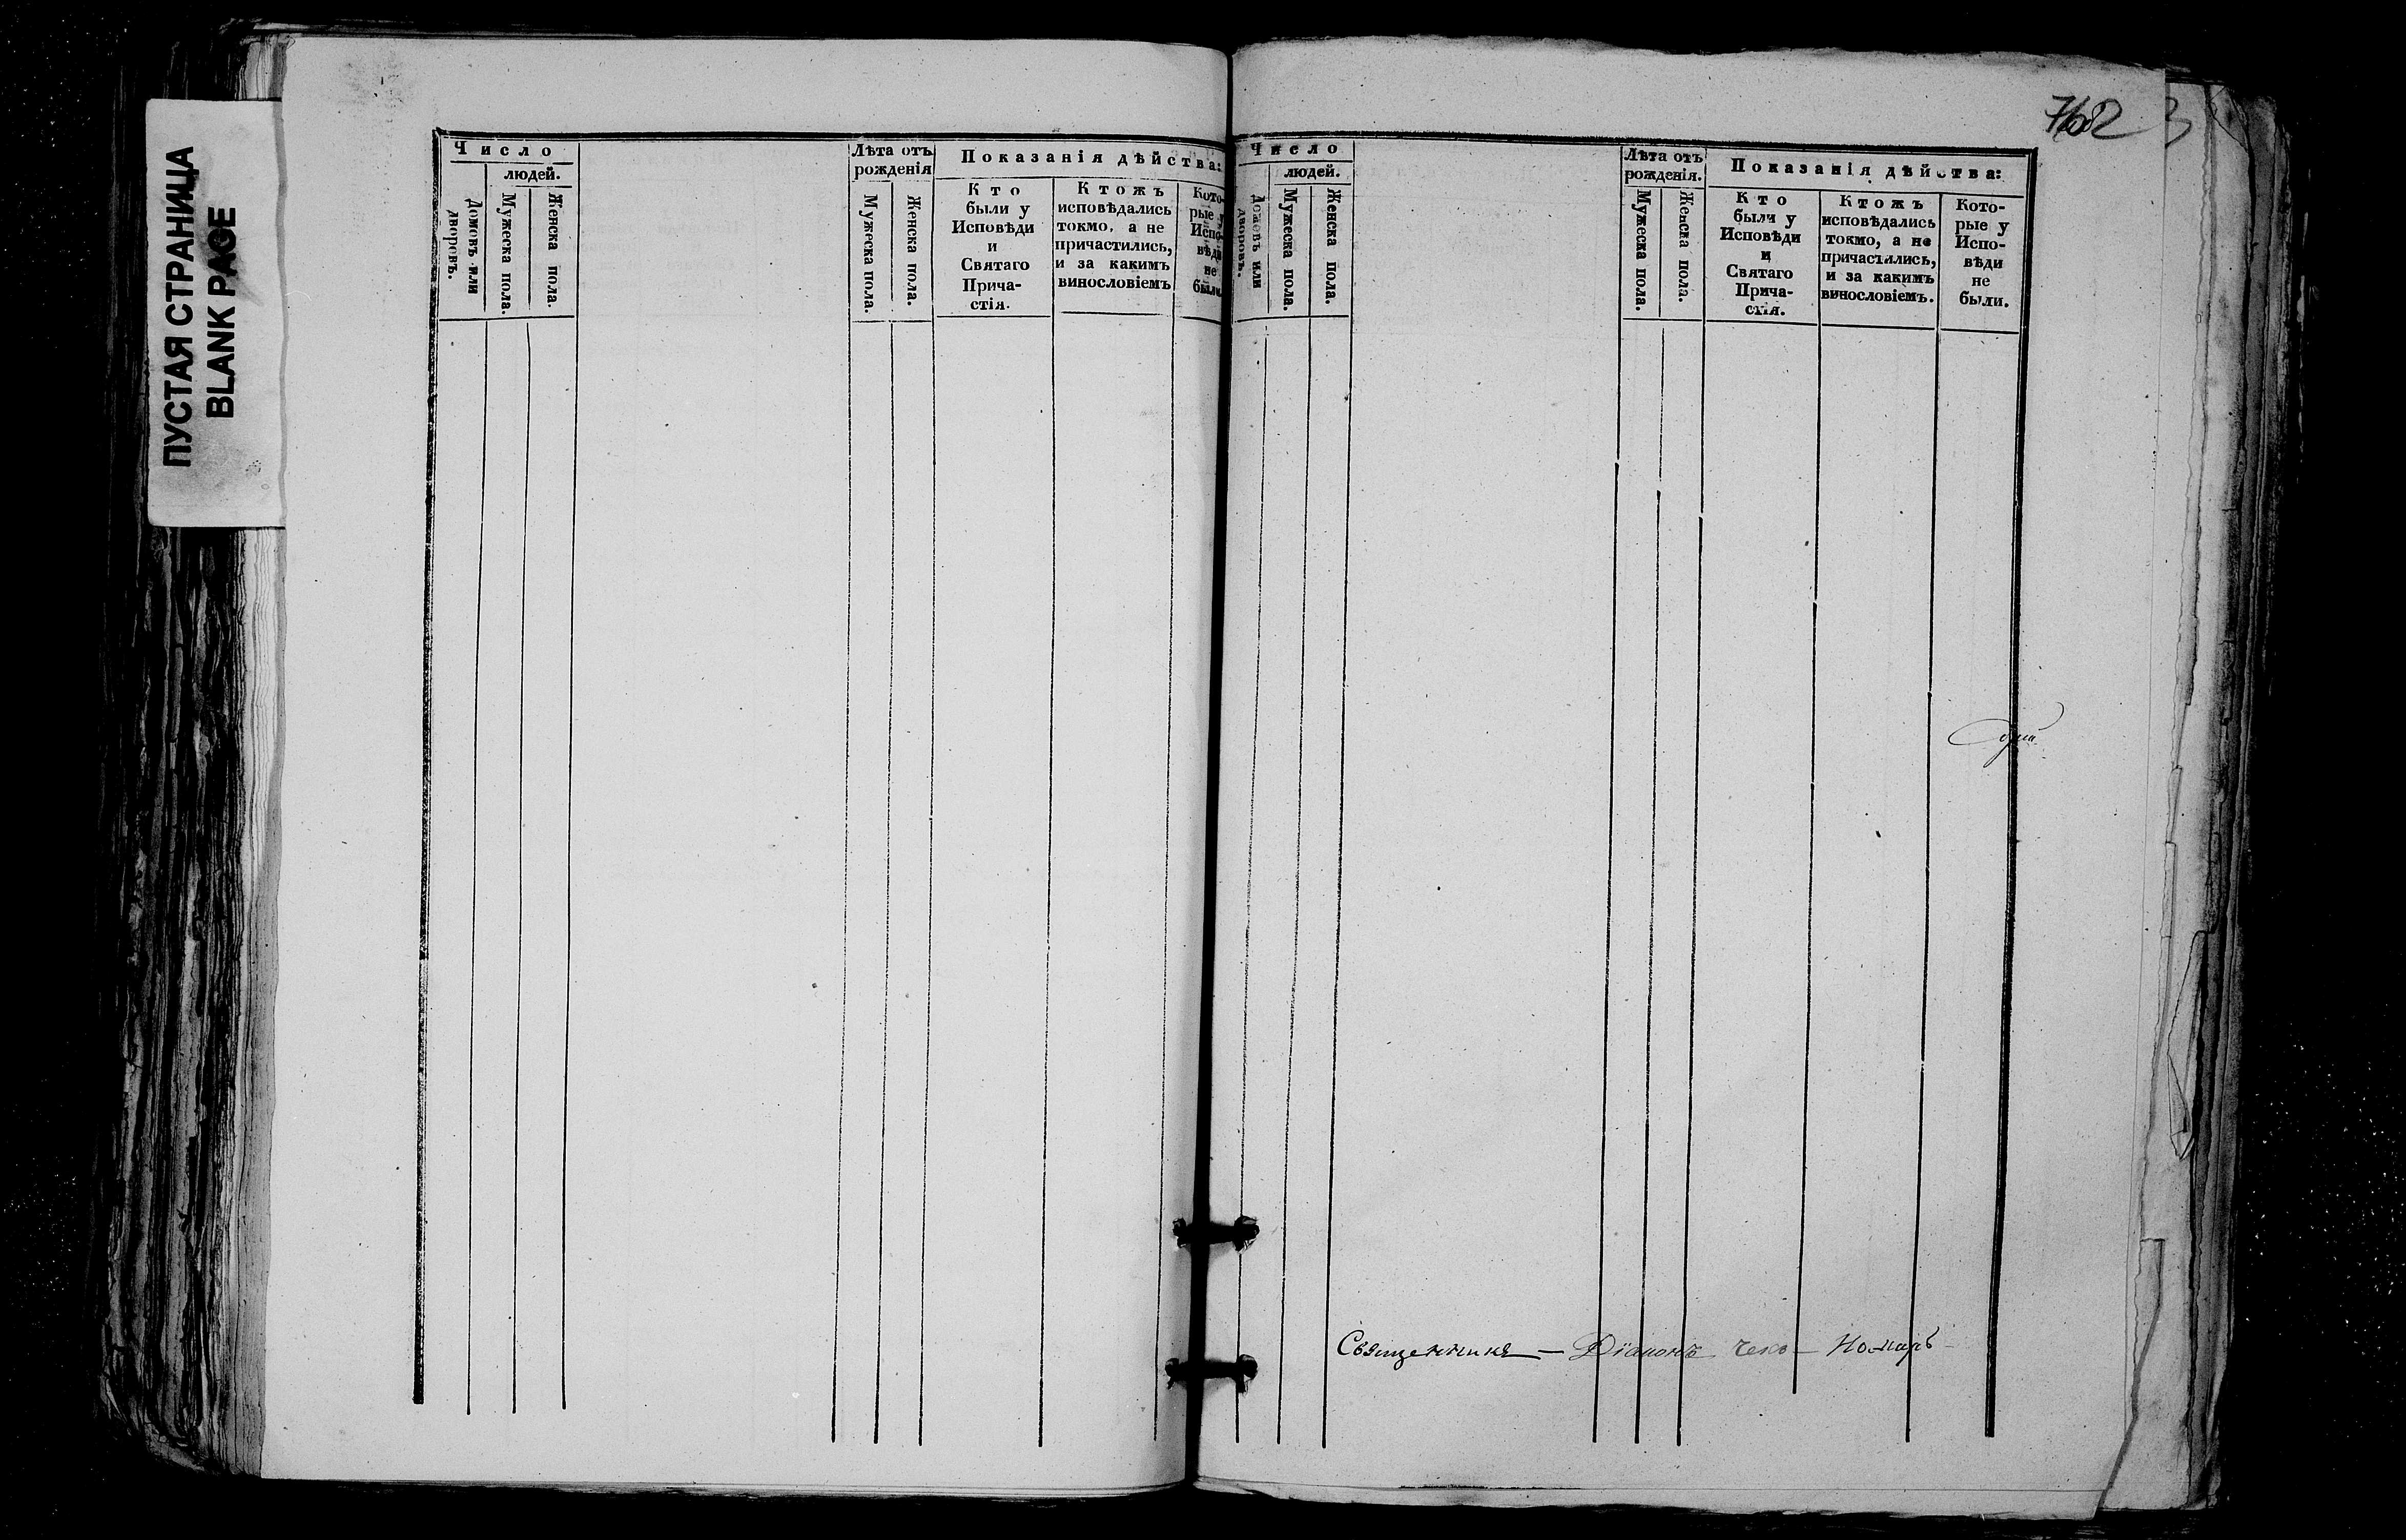 ПУСТАЯ СТРАНИЦА
BLANK PAGE
Число
людей.
Домовъ или
дворовъ.
Мужеска пола.
Женска пола.
Лѣта отъ
рожденія
Мужеска пола.
Женска пола.
Показанія дѣйства:
Кто
были у
Исповѣди
и
Святаго
Прича-
стія.
Ктожъ
исповѣдались
токмо, а не
причастились,
и за какимъ
винословіемъ
Кото-
рые у
Испо-
вѣди
не
были
762
Число
людей.
Домовъ или
дворовъ.
Мужеска пола.
Женска пола.
Лѣта отъ
рожденія.
Мужеска пола.
Женска пола.
Показанія дѣйства:
Кто
были у
Исповѣди
и
Святаго
Прича-
стія.
Ктожъ
исповѣдались
токмо, а не
причастились,
и за какимъ
винословіемъ.
Кото-
рые у
Испо-
вѣди
не
были.
Священника — Діаконъ